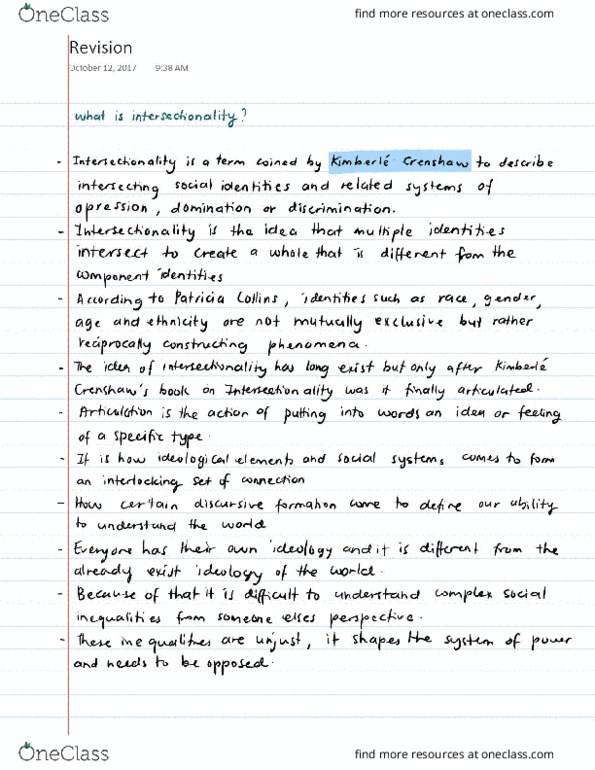 OneClass
find more resources at oneclass.com
Revision
October 12, 2017 9:38 AM
what is intersectionality?
- Intersectionality is a term coined by Kimberlé Crenshaw to describe
intersecting social identities and related systems of
opression, domination or discrimination.
- Intersectionality is the idea that multiple identities
intersect to create a whole that is different from the
component identities
- According to Patricia Collins, identities such as race, gender,
age and ethnicity are not mutually exclusive but rather
reciprocally constructing phenomena.
- The idea of intersectionality has long exist but only after Kimberlé
Crenshaw's book on Intersectionality was it finally articulated.
- Articulation is the action of putting into words an idea or feeling
of a specific type.
- It is how ideological elements and social systems comes to form
an interlocking set of connection
- How certain discursive formation come to define our ability
to understand the world
- Everyone has their own ideology and it is different from the
already exist ideology of the world.
- Because of that it is difficult to understand complex social
inequalities from someone elses perspective.
- These inequalities are unjust, it shapes the system of power
and needs to be opposed.
OneClass
find more resources at oneclass.com